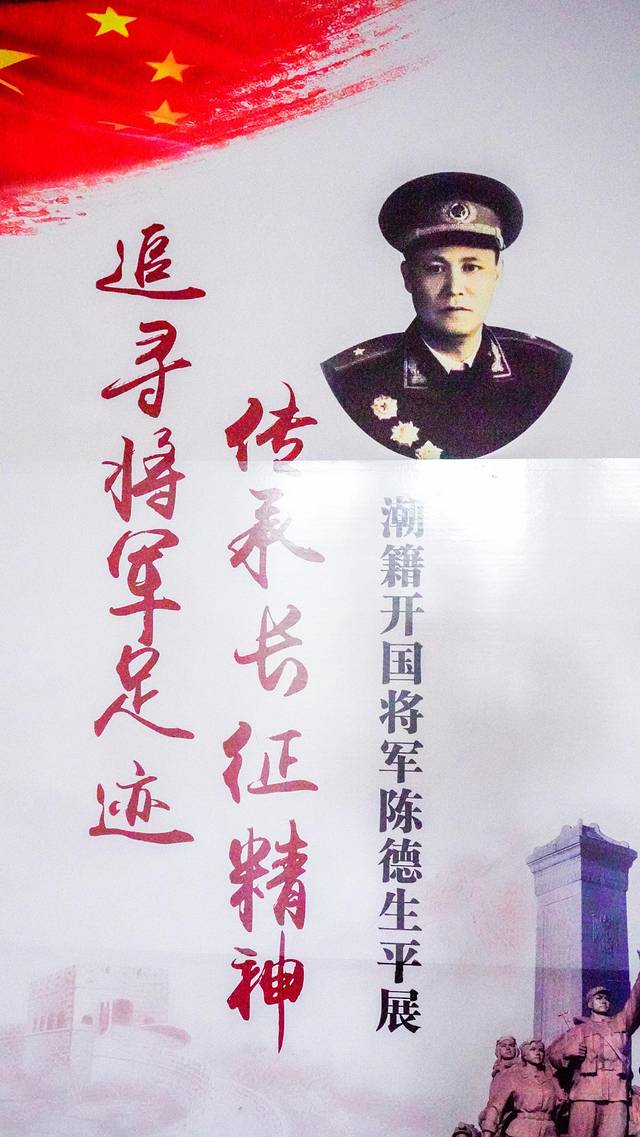 追寻将军足迹
传承长征精神
潮籍开国将军陈德生平展